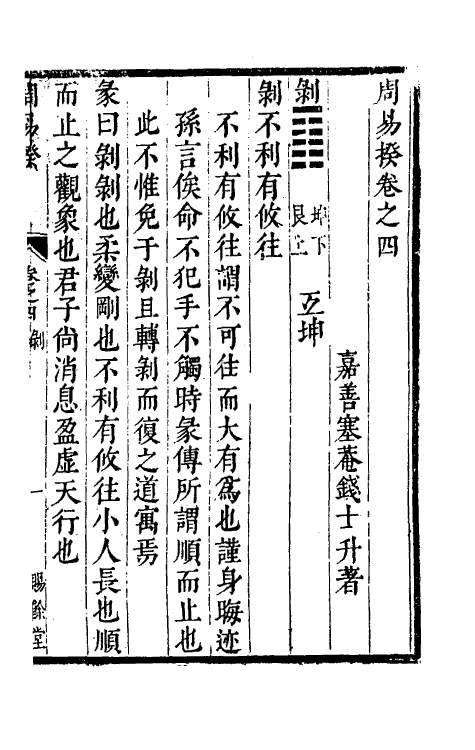 周易揆卷之四
嘉善塞菴錢士升著
剝 坤下 艮上 互坤
剝不利有攸往
不利有攸往謂不可往而大有為也謹身晦迹
孫言俟命不犯手不觸時彖傳所謂順而止也
此不惟免于剝且轉剝而復之道寓焉
彖曰剝剝也柔變剛也不利有攸往小人長也順
而止之觀象也君子尚消息盈虛天行也
周易揆 卷之四 剝 一 賜餘堂